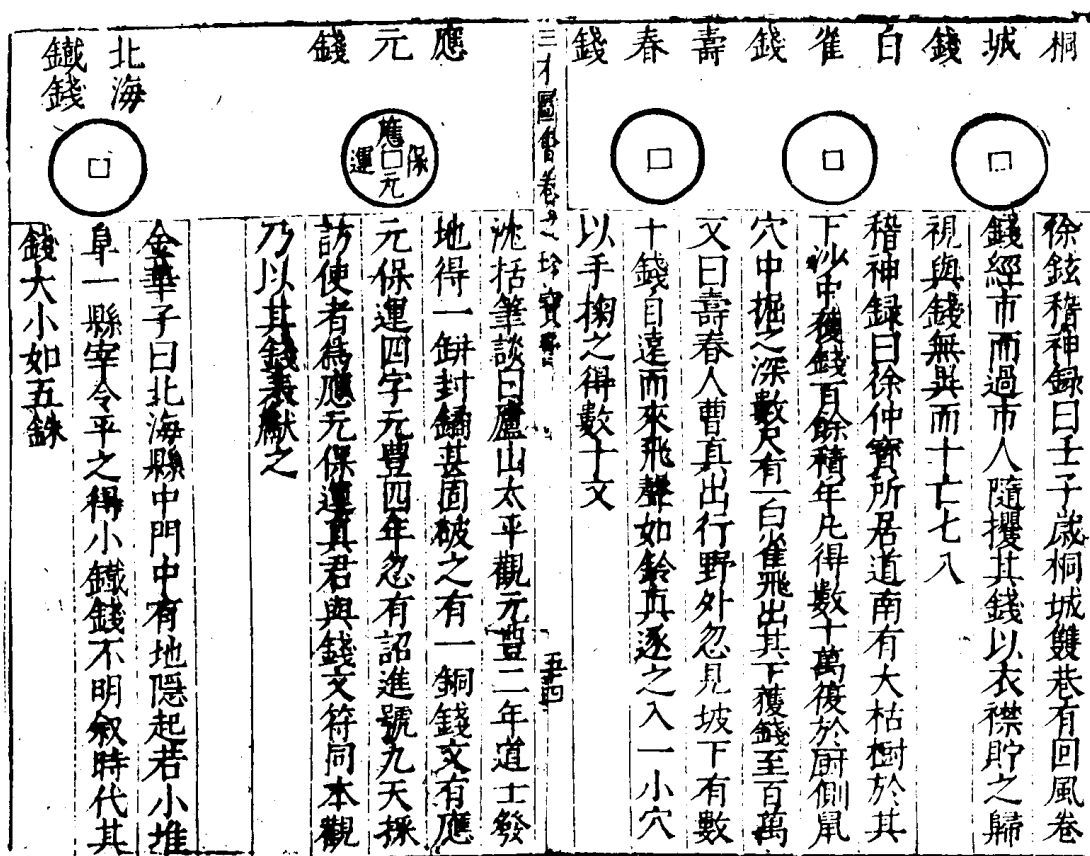 桐城錢
徐鉉稽神録曰壬子歳桐城雙巷有回風卷
錢經市而過市人隨攫其錢以衣襟貯之歸
視與錢無異而十亡七八
白雀錢
稽神録曰徐仲寳所居道南有大枯樹於其
下沙中獲錢百餘積年凡得數十萬後於厨側鼠
穴中掘之深數尺有一白雀飛出其下獲錢至百萬
壽春錢
又曰壽春人曹真出行野外忽見坡下有數
十錢自遠而來飛聲如鈴真逐之入一小穴
以手掬之得數十文
三才圖會卷之 珍寶
五十四
應元錢
應元保運
沈括筆談曰廬山太平觀元豊二年道士發
地得一缾封鐍甚固破之有一銅錢文有應
元保運四字元豊四年忽有詔進號九天採
訪使者爲應元保運真君與錢文符同本觀
乃以其錢表獻之
北海鐵錢
金華子曰北海縣中門中有地隠起若小堆
阜一縣宰令平之得小鐵錢不明叙時代其
錢大小如五銖